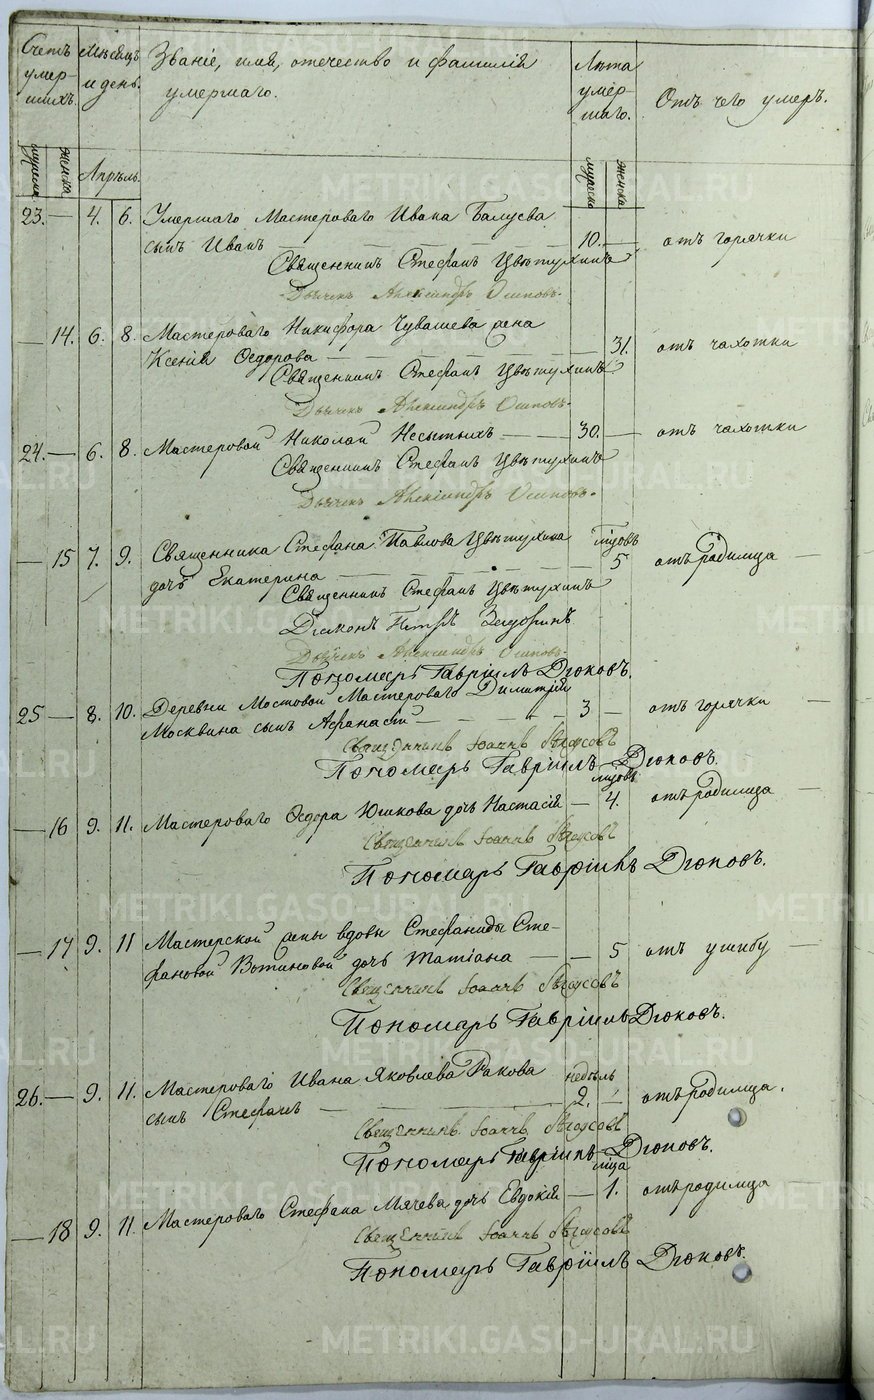 Счетъ умер- шихъ.
Мѣсяцъ и день.
Званіе, имя, отечество и фамилія умершаго.
Лѣта умер- шаго.
Отъ чего умеръ.
мужеска
женска
Апрѣль.
мужеска
женска
23. — 4. 6. Умершаго Мастероваго Ивана Балуева
сынъ Иванъ — 10. — отъ горячки
Священникъ Стефанъ Цвѣтухинъ
Дьячекъ Александръ Осиповъ.
— 14. 6. 8. Мастероваго Никифора Чувашева жена
Ксенія Ѳедорова — 31. отъ чахотки
Священникъ Стефанъ Цвѣтухинъ
Дьячекъ Александръ Осиповъ.
24. — 6. 8. Мастеровой Николай Несытыхъ — 30. — отъ чахотки
Священникъ Стефанъ Цвѣтухинъ
Дьячекъ Александръ Осиповъ.
— 15 7. 9. Священника Стефана Павлова Цвѣтухина мцовъ
дочь Екатерина — 5 отъ родимца —
Священникъ Стефанъ Цвѣтухинъ
Діаконъ Петръ
Дьячекъ Александръ Осиповъ.
Пономарь Гавріилъ Дюковъ.
25 — 8. 10. Деревни Мостовой Мастероваго Димитрія
Москвина сынъ Афанасій — 3 — отъ горячки —
Священникъ Іоаннъ
Пономарь Гавріилъ Дюковъ.
мцовъ
— 16 9. 11. Мастероваго Ѳедора Юшкова дочь Настасія — 4. отъ родимца —
Священникъ Іоаннъ
Пономарь Гавріилъ Дюковъ.
— 17 9. 11 Мастерской жены вдовы Стефаниды Сте-
фановой Вотиновой дочь Татіана — — 5 отъ ушибу —
Священникъ Іоаннъ
Пономарь Гавріилъ Дюковъ.
26. — 9. 11. Мастероваго Ивана Яковлева Ракова недѣль
сынъ Стефанъ — 2. — отъ родимца.
Священникъ Іоаннъ
Пономарь Гавріилъ Дюковъ.
мца
— 18 9. 11. Мастероваго Стефана Мячева дочь Евдокія — 1. отъ родимца —
Священникъ Іоаннъ
Пономарь Гавріилъ Дюковъ.
METRIKI.GASO-URAL.RU